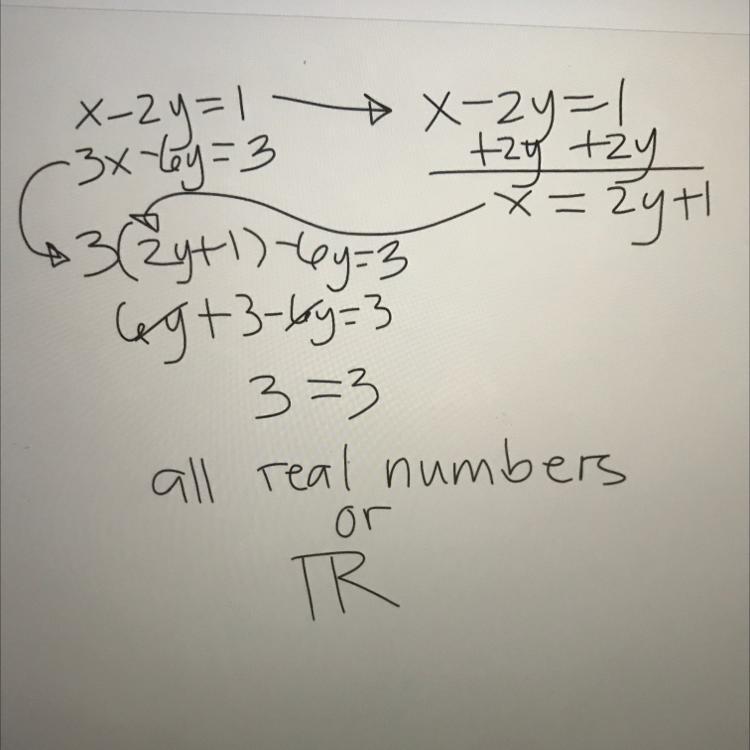 x-2y=1
3x-6y=3
x-2y=1
+2y +2y
x=2y+1
3(2y+1)-6y=3
6y+3-6y=3
3=3
all real numbers
or
ℝ